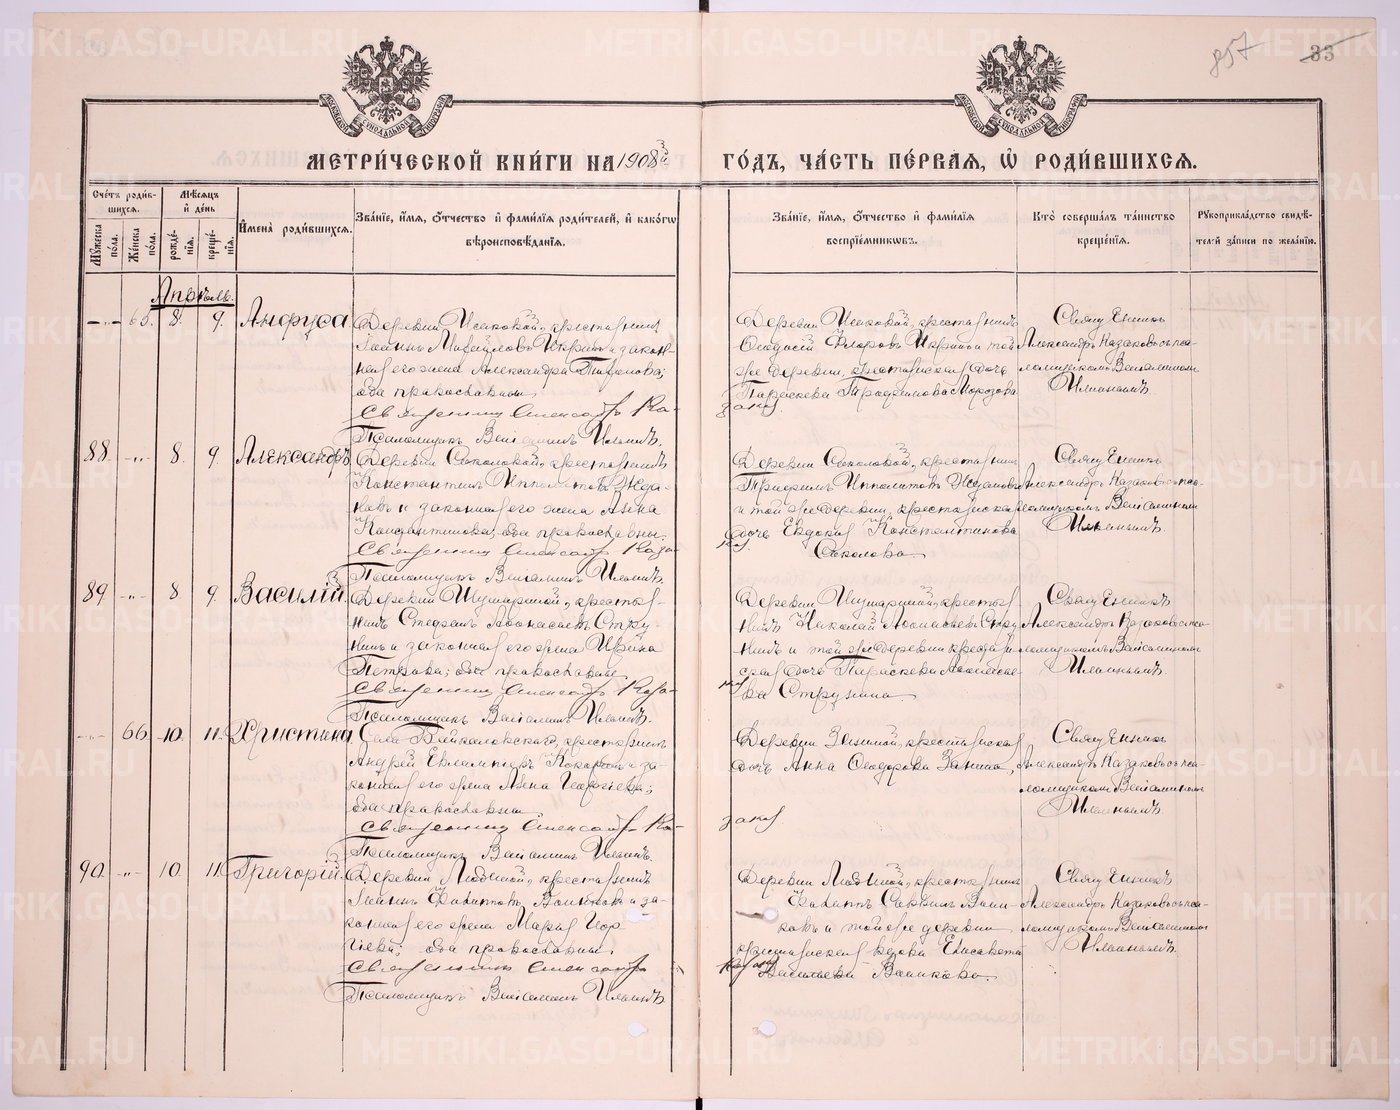 857 33
МЕТРИ́ЧЕСКОЙ КНИ́ГИ НА 1908й
ГО́ДЪ, ЧА́СТЬ ПЕ́РВАЯ, Ѽ РОДИ́ВШИХСѦ.
Счетъ родив-
шихся.
Мѣсяцъ
и день
Мужеска
пола.
Женска
пола.
рожде-
нія.
креще-
нія.
Имена родившихся.
Званіе, имя, отчество и фамилія родителей, и какогѡ
вѣроисповѣданія.
Званіе, имя, отчество и фамилія
воспріемникѡвъ.
Кто совершалъ таинство
крещенія.
Рукоприкладство свидѣ-
телей записи по желанію.
Апрѣль.
-„- 65. 8. 9. Анфуса
Деревни Исаковой, крестьянинъ
Іоаннъ Михайловъ и закон-
ная его жена Александра
оба православные
Священникъ Александръ Ка-
Псаломщикъ Веніаминъ Ильинъ.
Деревни Исаковой, крестьянинъ
Ѳеодосій Флоровъ и той
же деревни, крестьянская дочь
Параскева Трофимова Морозова
заковъ
Свящ Енникъ
Александръ Казаковъ съ пса-
ломщикомъ Веніаминомъ
Ильинымъ.
88. -„- 8. 9. Александръ
Деревни Соколовой, крестьянинъ
Константинъ Ипполитовъ Жда-
новъ и законная его жена Анна
Константинова, оба православны.
Священникъ Александръ Каза-
Псаломщикъ Веніаминъ Ильинъ.
Деревни Соколовой, крестьянинъ
Ипполитовъ Ждановъ
и той же деревни, крестьянская
дочь Евдокія Константинова
Соколова.
Свящ Енникъ
Александръ Казаковъ съ пса-
ломщикомъ Веніаминомъ
Ильинымъ.
89 -„- 8 9. Василій.
Деревни крестья-
нинъ Стефанъ Аѳонасьевъ Стру-
нинъ и законная его жена Ирина
Петрова; оба православны
Священникъ Александръ Каза-
Псаломщикъ Веніаминъ Ильинъ.
Деревни крестья-
нинъ Николай Аѳонасьевъ Стру-
нинъ и той же деревни крестьян-
ская дочь Параскева
ва Струнина
Свящ Енникъ
Александръ Казаковъ съ пса-
ломщикомъ Веніаминомъ
Ильинымъ.
-„- 66. 10. 11. Христина
Села Байкаловскаго, крестьянинъ
Андрей Евлампіевъ и за-
конная его жена Анна Георгіева;
оба православны
Священникъ Александръ Ка-
Псаломщикъ Веніаминъ Ильинъ.
Деревни крестьянская
дочь Анна Ѳеодорова Занина,
заковъ
Свящ Енникъ
Александръ Казаковъ съ пса-
ломщикомъ Веніаминомъ
Ильинымъ.
90. -„- 10. 11. Григорій.
Деревни Любиной, крестьянинъ
Іоаннъ и за-
конная его жена Марія Геор-
гіева; оба православны.
Священникъ Александръ
Псаломщикъ Веніаминъ Ильинъ
Деревни Любиной, крестьянинъ
Савинъ
ковъ и той же деревни
крестьянская вдова Елисавета
Казаковъ Васильева
Свящ Енникъ
Александръ Казаковъ съ пса-
ломщикомъ Веніаминомъ
Ильинымъ.
METRIKI.GASO-URAL.RU